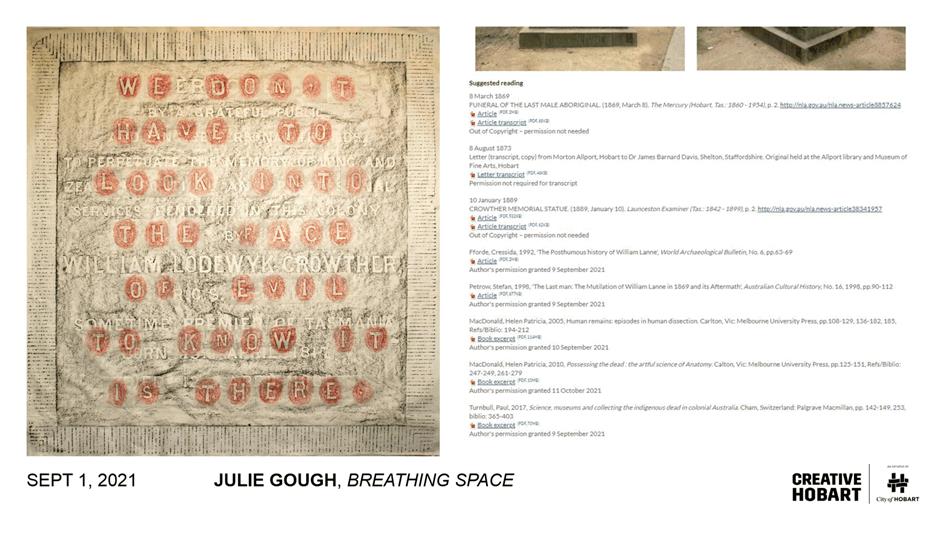 WE DON'T
BY A GRATEFUL PUBLIC
HAVE TO
TO PERPETUATE THE MEMORY OF LONG AND
LOOK INTO
SERVICES RENDERED IN THIS COLONY
THE BY FACE
WILLIAM LODEWYK CROWTHER
OF EVIL
SOMETIME PREMIER OF TASMANIA
TO KNOW IT
BORN
IS THERE.
Suggested reading
8 March 1869
FUNERAL OF THE LAST MALE ABORIGINAL. (1869, March 8). The Mercury (Hobart, Tas.: 1860 - 1954), p. 2. http://nla.gov.au/nla.news-article8857624
Article
Article transcript
Out of Copyright – permission not needed
8 August 1873
Letter (transcript, copy) from Morton Allport, Hobart to Dr James Barnard Davis, Shelton, Staffordshire. Original held at the Allport library and Museum of
Fine Arts, Hobart
Letter transcript
Permission not required for transcript
10 January 1889
CROWTHER MEMORIAL STATUE. (1889, January 10), Launceston Examiner (Tas.: 1842 - 1899), p. 2. http://nla.gov.au/nla.news-article38341957
Article
Article transcript
Out of Copyright – permission not needed
Fforde, Cressida, 1992, 'The Posthumous history of William Lanne', World Archaeological Bulletin, No. 6, pp.63-69
Article
Author's permission granted 9 September 2021
Petrow, Stefan, 1998, 'The Last man: The Mutilation of William Lanne in 1869 and its Aftermath', Australian Cultural History, No. 16, 1998, pp.90-112
Article
Author's permission granted 9 September 2021
MacDonald, Helen Patricia, 2005, Human remains: episodes in human dissection. Carlton, Vic: Melbourne University Press, pp.108-129, 136-182, 185,
Refs/Biblio: 194-212
Book excerpt
Author's permission granted 10 September 2021
MacDonald, Helen Patricia, 2010, Possessing the dead : the artful science of Anatomy. Calton, Vic: Melbourne University Press, pp.125-151, Refs/Biblio:
247-249, 261-279
Book excerpt
Author's permission granted 11 October 2021
Turnbull, Paul, 2017, Science, museums and collecting the indigenous dead in colonial Australia. Cham, Switzerland: Palgrave Macmillan, pp. 142-149, 253,
biblio: 365-403
Book excerpt
Author's permission granted 9 September 2021
SEPT 1, 2021
JULIE GOUGH, BREATHING SPACE
CREATIVE
HOBART
City of HOBART